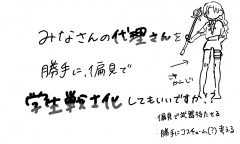 みなさんの代理さんを
勝手に、偏見で
学生戦士化してもいいですか?
こんかんじ
・偏見で武器持たせる
・勝手にコスチューム(?)考える